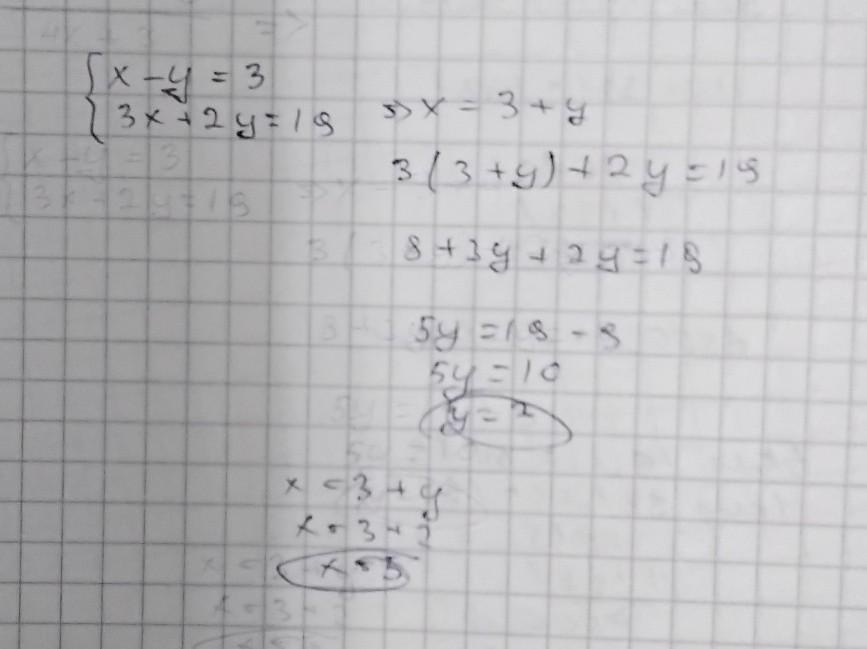 x - y = 3
3x + 2y = 19 => x = 3 + y
3(3 + y) + 2y = 19
9 + 3y + 2y = 19
5y = 19 - 9
5y = 10
y = 2
x = 3 + y
x = 3 + 2
x = 5